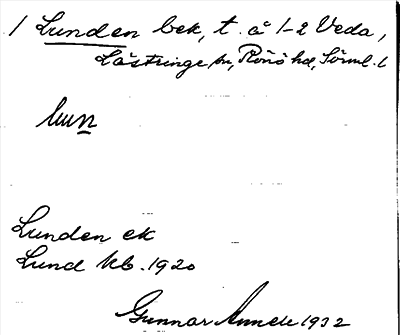 1 Lunden bek, t. å 1-2 Veda,
Lästringe sn, Rönö hd, Sörml. l
lun
Lunden ek
Lund kb. 1920
Gunnar 1932